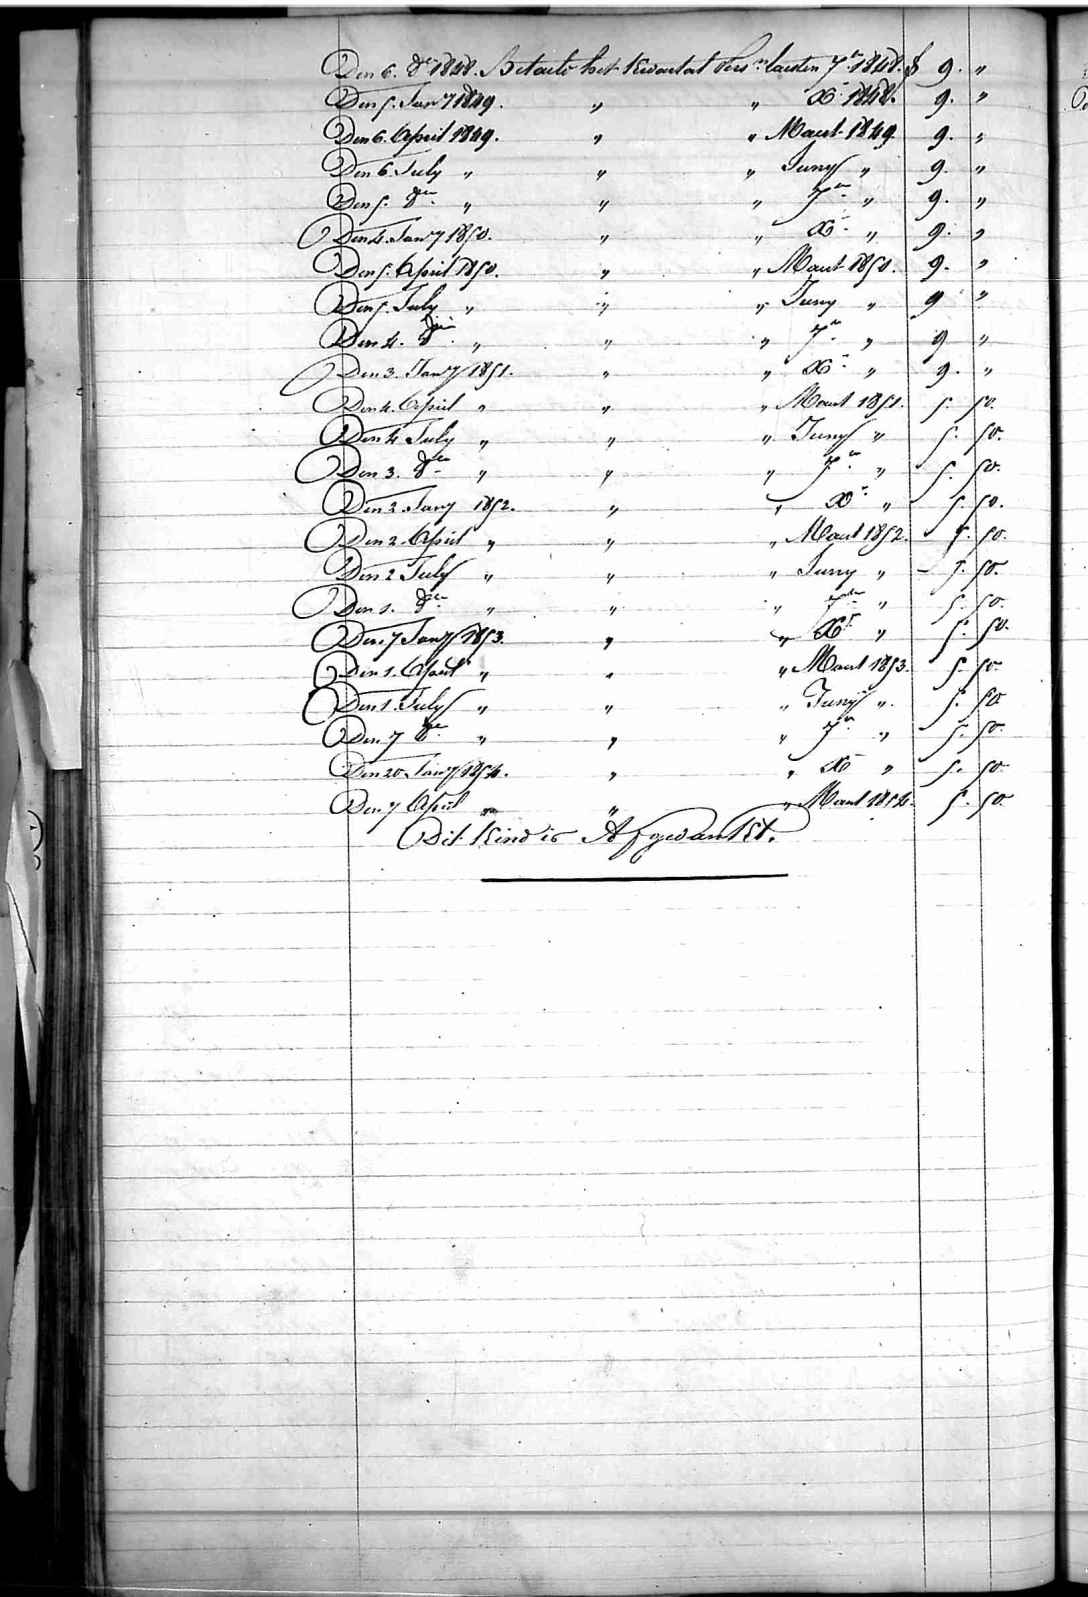 Den 6. 8br 1848. Betaald het Kwartaal Vers.n laasten 7br 1848. $ 9. "
Den 5. Jany 1849. " " Xbr 1848. 9. "
Den 6. April 1849. " " Maart 1849 9. "
Den 6. July " " " Juny " 9. "
Den 5. 8br " " " 7br " 9. "
Den 4. Jany 1850. " " Xbr " 9. "
Den 5. April 1850. " " Maart 1850. 9. "
Den 5. July " " " Juny " 9 "
Den 4. 8br " " " 7br " 9 "
Den 3. Jany 1851. " " Xbr " 9. "
Den 4. April " " " Maart 1851. 5. 50.
Den 4 July " " " Juny " 5. 50.
Den 3. 8br " " " 7br " 5. 50.
Den 2 Jany 1852. " " Xbr " 5. 50.
Den 2. April " " " Maart 1852. 5. 50.
Den 2 July " " " Juny " 5. 50.
Den 1. 8br " " " 7br " 5. 50.
Den 7 Jany 1853. " " Xbr " 5. 50.
Den 1. April " " " Maart 1853. 5. 50.
Den 1. July " " " Juny " 5. 50
Den 7 8br " " " 7br " 5. 50.
Den 20 Jany 1854. " " Xbr " 5. 50
Den 7 April " " " Maart 1854. 5. 50.
Dit Kind is Afgedankt.